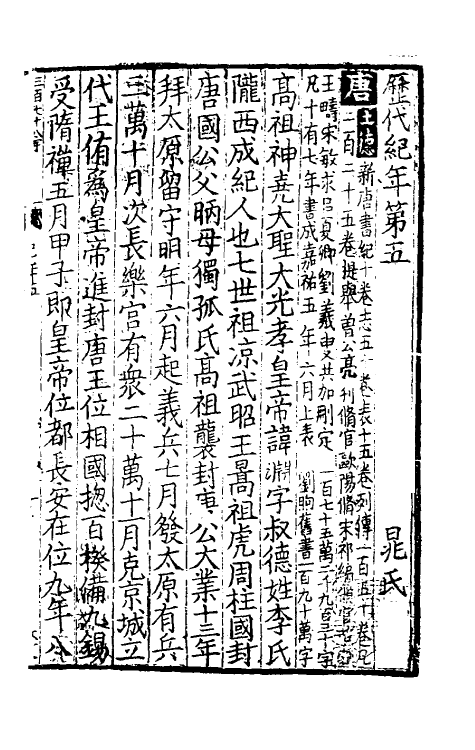 歷代紀年第五
晁氏
唐 土德 新唐書紀十卷志五十卷表十五卷列傳一百五十卷凡
二百二十五卷提舉曾公亮刊脩官歐陽脩宋祁編脩官范鎮
王疇宋敏求呂夏卿劉羲叟共加刪定 一百七十五萬二千九百三十字
凡十有七年書成嘉祐五年六月上表 劉昫舊書一百九十萬字
高祖神堯大聖大光孝皇帝諱淵字叔德姓李氏
隴西成紀人也七世祖凉武昭王暠祖虎周柱國封
唐國公父昞母獨孤氏高祖襲封唐公大業十三年
拜太原留守明年六月起義兵七月發太原有兵
三萬十月次長樂宮有衆二十萬十月克京城立
代王侑爲皇帝進封唐王位相國揔百揆備九錫
受隋禪五月甲子即皇帝位都長安在位九年